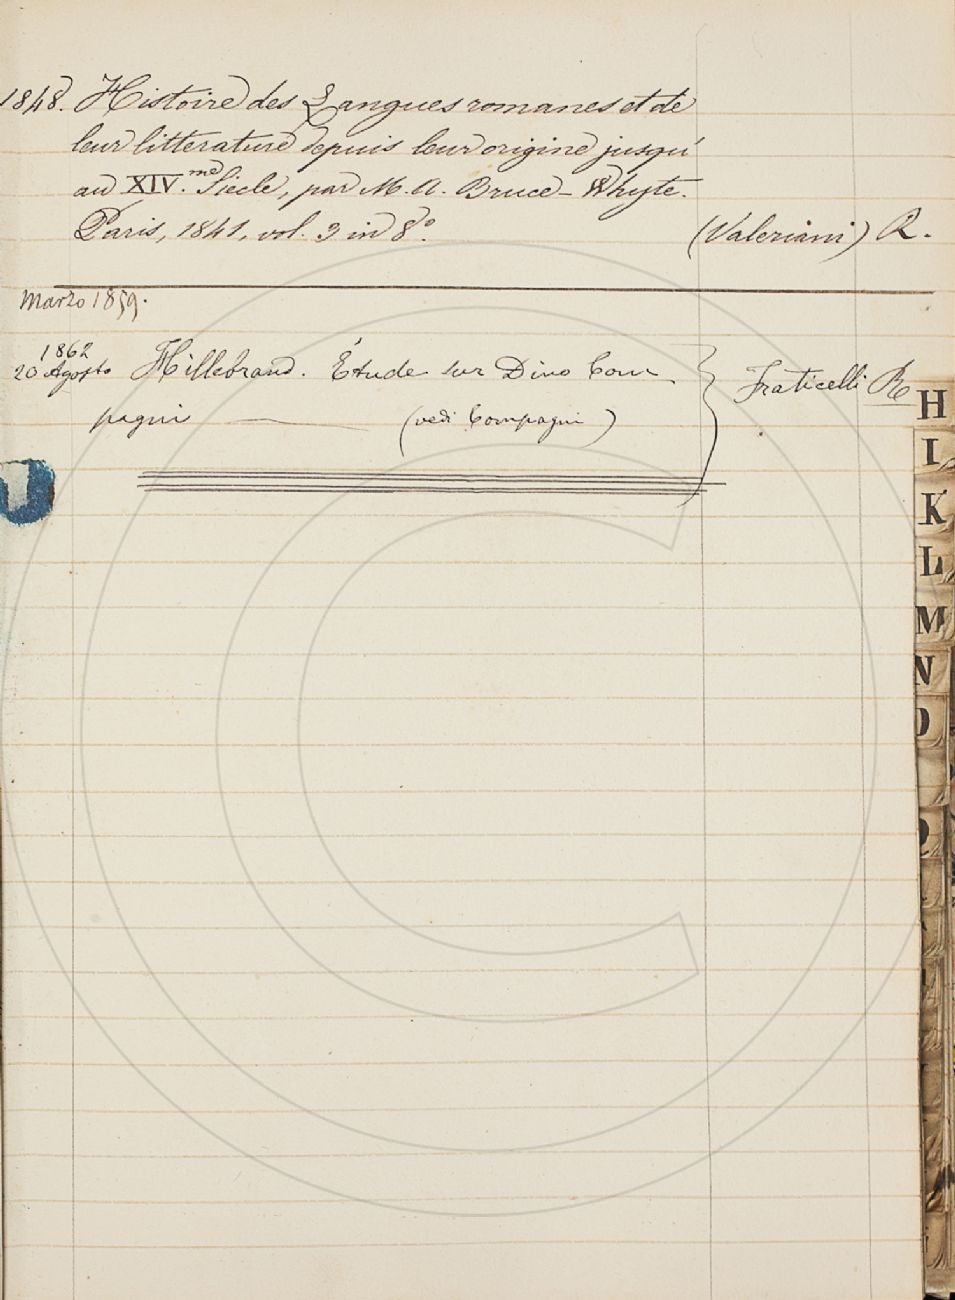 1848. Histoire des Langues romanes et de
leur litterature depuis leur origine jusqu'
au XIV.me Siecle, par M. A. Bruce-Whyte.
Paris, 1841, vol. 3 in 8.o (Valeriani) R.
Marzo 1859.
1862
20 Agosto Hillebrand. Étude sur Dino Com
pagni (vedi Compagni) Fraticelli R
H
I
K
L
M
N
O